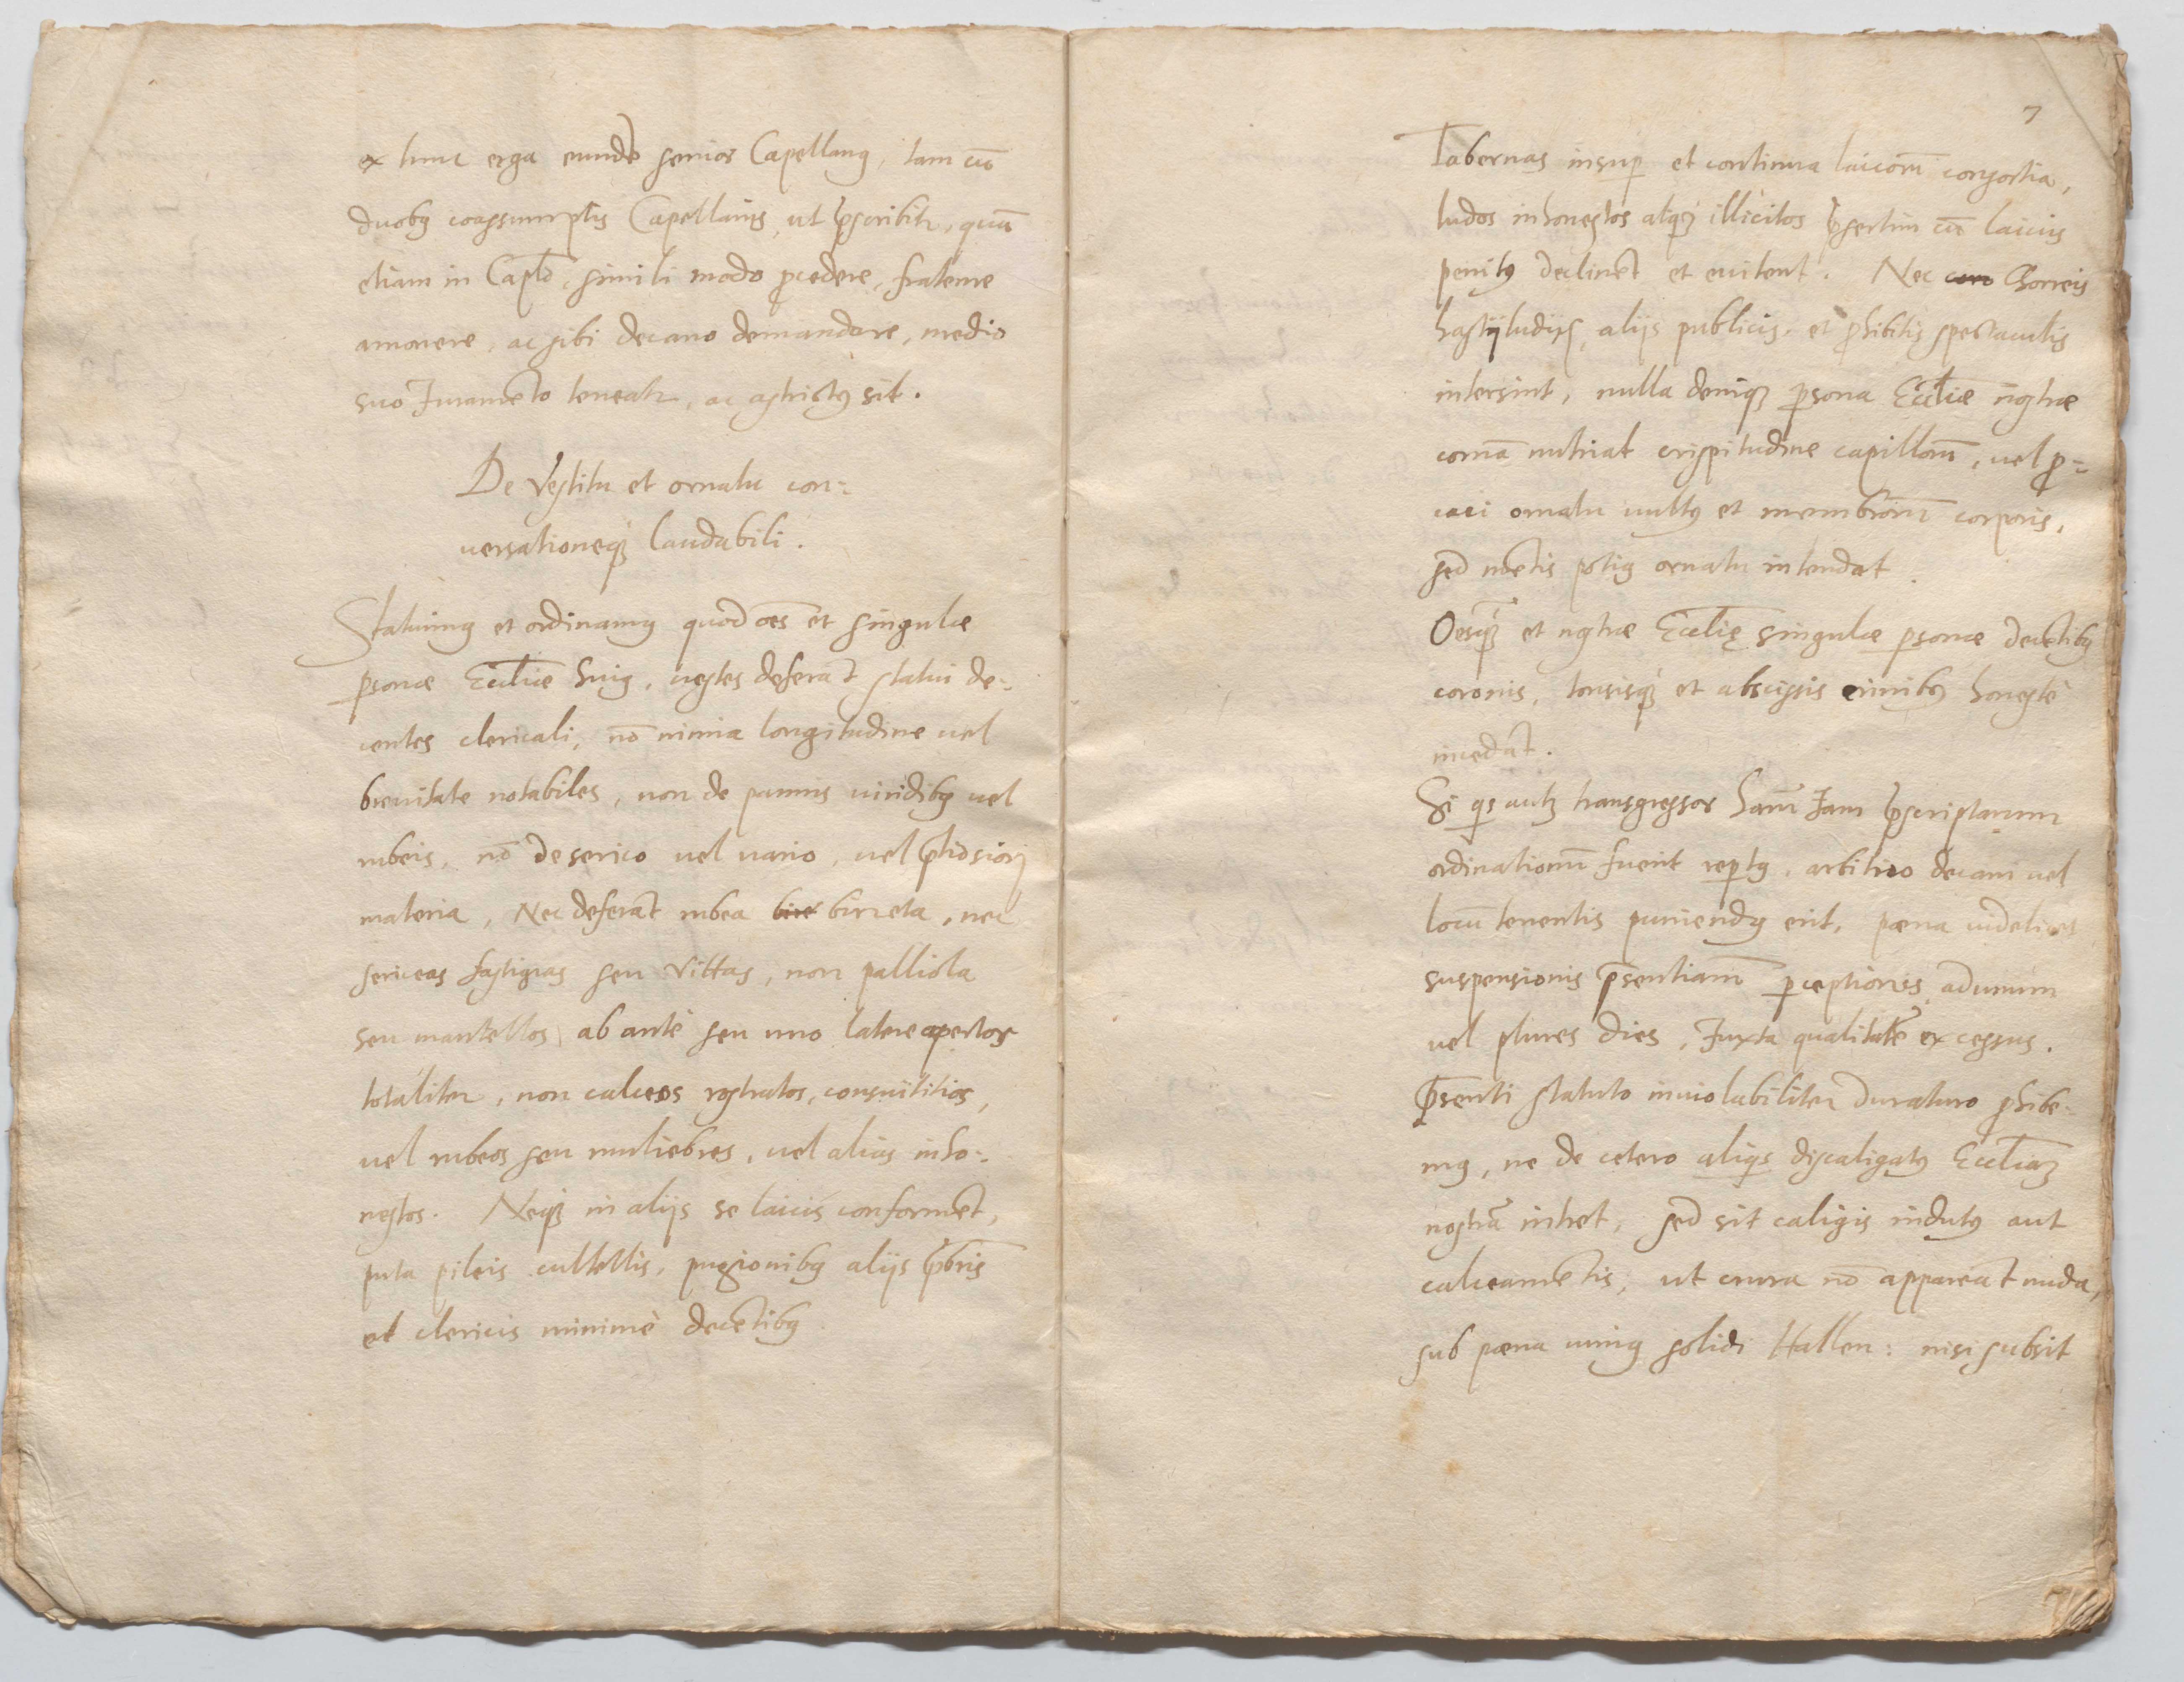 ex tunc erga eundē senior Capellanꝰ, tam cū
duobꝰ coassumptis Capellanis, ut p̄scribitr, quā
etiam in Caplō, simili modo ꝓcedere, fraterne
amonere, ac sibi decano demandare, medio
suo Iuramēto teneatr, ac astrictꝰ sit.
De Vestitu et ornatu con-
uersationeqꝫ laudabili.
Statuimꝰ et ordinamꝰ quod oēs et singulæ
ꝑsonæ Eccliæ huiꝰ, uestes deferāt statui de-
centes clericali, nō nimia longitudine uel
breuitate notabiles, non de pannis uiridibꝰ uel
rubeis, nō de serico uel uario, uel p̄tiosiori
materia, Nec deferāt rubea bire birreta, nec
sericeas fastigias seu vittas, non palliola
seu mantellos, ab antè seu uno latere apertos
totaliter, non calceos rostratos, consuititios,
uel rubeos seu muliebres, uel alias inho-
nestos. Neqꝫ in alijs se laicis conformēt,
puta pileis cultellis, pugionibꝰ alijs
et clericis minimè decētibꝰ
7
Tabernas insuꝑ et continua laicorū consortia,
ludos inhonestos atqꝫ illicitos p̄sertim cū laicis
penitꝰ declinēt et euitent. Nec coro Choreis
hastijludijs, alijs publicis et ꝓhibitis spectaculis
intersint, nulla deniqꝫ ꝑsona Eccliæ n̄ostræ
comā nutriat crispitudine capillorū, uel ꝓ-
caci ornatu uultꝰ et membrorū corporis,
sed mētis potiꝰ ornatu intendat.
Oesqꝫ et nostræ Eccliȩ singulæ ꝑsonæ decētibꝰ
coronis, tonsisqꝫ et abscissis crinibꝰ honestè
incedāt.
Si qs autꝫ transgressor harū Iam p̄scriptarum
ordinationū fuerit reꝑtꝰ, arbitrio decani uel
locū tenentis puniendꝰ erit, pæna uidelicet
suspensionis p̄sentiarū ꝑceptionis, ad unum
uel plures dies, Iuxta qualitatē excessus.
P̄senti statuto inuiolabiliter duraturo ꝓhibe-
mꝰ, ne de cetero aliqs discaligatꝰ Eccliaꝫ
nostrā intret, sed sit caligis indutꝰ aut
calceamētis, ut crura nō appareāt nuda,
sub pæna uniꝰ solidi Hallen: nisi subsit